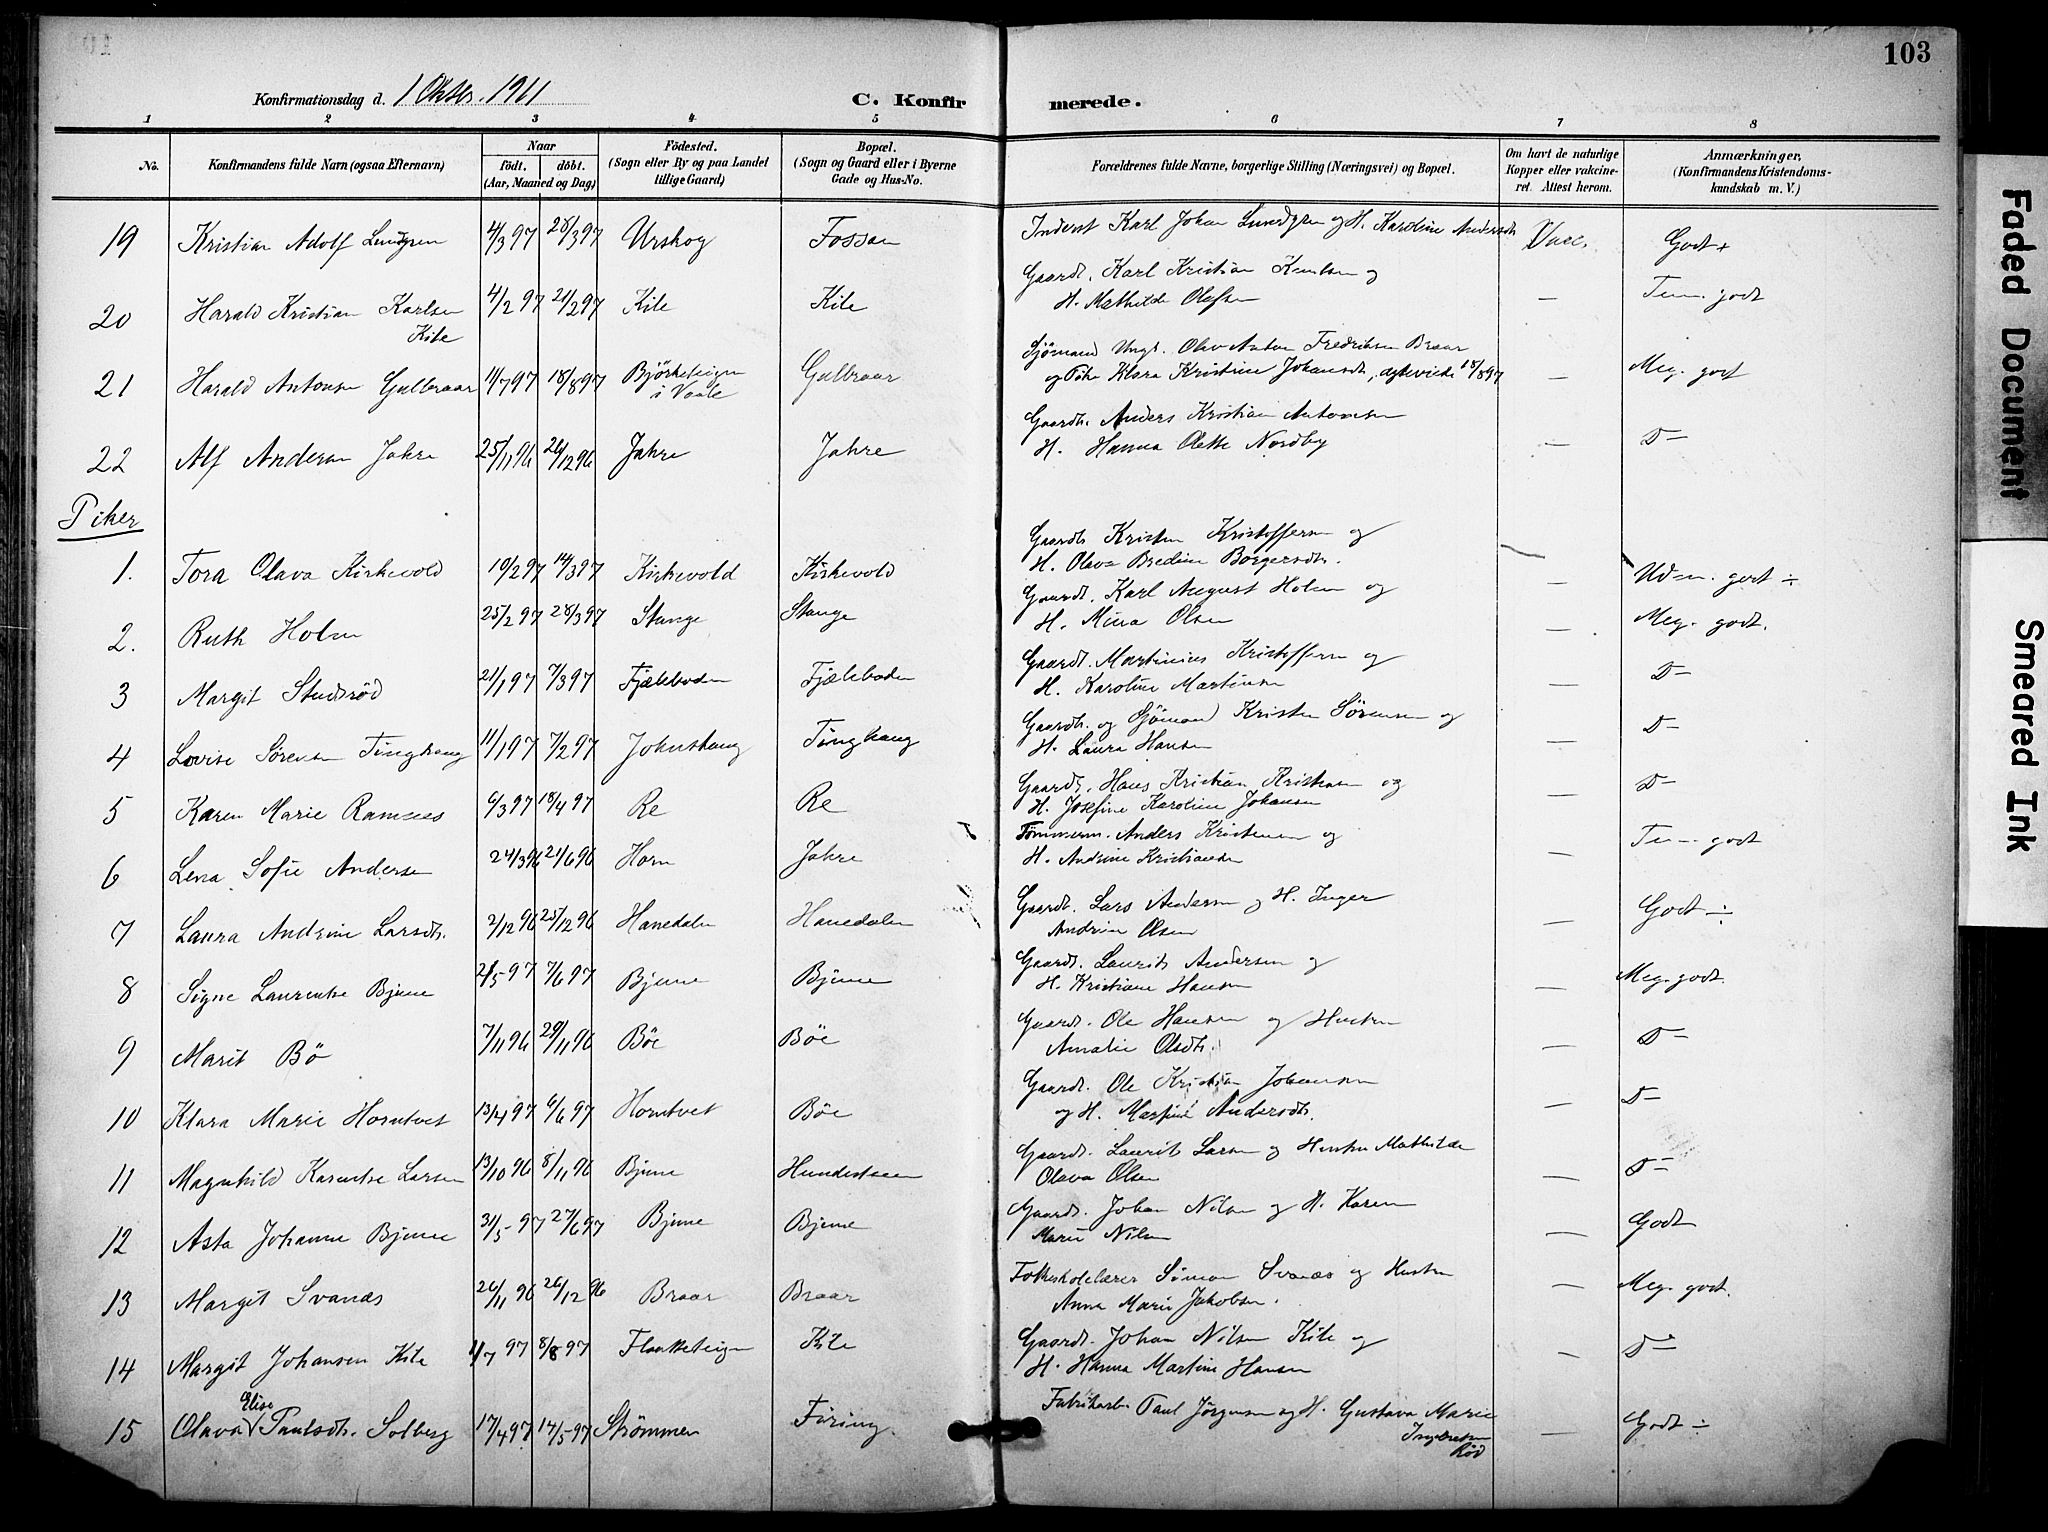 103
Konfirmationsdag d. 1 Oktbr. 1911
C. Konfirmerede.
1 2 3 4 5 6 7 8
No.
Konfirmandens fulde Navn (ogsaa Efternavn)
Naar
født. døbt.
(Aar, Maaned og Dag)
Fødested.
(Sogn eller By og paa Landet
tillige Gaard)
Bopæl.
(Sogn og Gaard eller i Byerne
Gade og Hus-No.
Forældrenes fulde Navne, borgerlige Stilling (Næringsvei) og Bopæl.
Om havt de naturlige
Kopper eller vakcine-
ret. Attest herom.
Anmærkninger,
(Konfirmandens Kristendoms-
kundskab m. V.)
19 Kristian Adolf Lundgren 4/3 97 28/3 97 Urskog Fossan Inderst Karl Johan Lundgren og H. Karoline Andersdt. Vacc. Godt +
20 Harald Kristian Karlsen Kile 4/2 97 21/2 97 Kile Kile Gaardb. Karl Kristian Knutsen og
H. Mathilde Olafsen — Tem. godt
21 Harald Antonsen Gulbraar 11/7 97 18/8 97 Bjørketeigen i Vaale Gulbraar Sjømand Ungk. Olav Anton Fredriksen Braar
og Pike Klara Kristine Johansdt., ægteviede 18/8 97 — Meg. godt
22 Alf Andersen Jahre 25/11 96 26/12 96 Jahre Jahre Gaardb. Anders Kristian Antonsen
H. Hanna Olette Nordby — D—
Piker
1. Tora Olava Kirkevold 19/2 97 14/3 97 Kirkevold Kirkevold Gaardb. Kristen Kristoffersen og
H. Olava Bredine Borgersdt. — Udm. godt ÷
2. Ruth Holm 25/2 97 28/3 97 Stange Stange Gaardb. Karl August Holm og
H. Mina Olsen — Meg. godt.
3 Margit Studsrød 21/1 97 7/3 97 Fjæleboden Fjæleboden Gaardb. Martinius Kristoffersen og
H. Karoline Martinsen — D—
4 Lovise Sørensen Tinghaug 11/1 97 7/2 97 Johnshaug Tinghaug Gaardb. og Sjømand Kristen Sørensen og
H. Laura Hansen — D—
5 Karen Marie Ramnes 6/3 97 18/4 97 Re Re Gaardb. Hans Kristian Kristiansen og
H. Josefine Karoline Johansen — D—
6 Lena Sofie Andersen 24/3 96 21/6 96 Horn Jahre Tømmerm. Anders Kristensen og
H. Andrine Kristiansen — Tem. godt
7 Laura Andrine Larsdt. 2/12 96 25/12 96 Hanedalen Hanedalen Gaardb. Lars Andersen og H. Inger
Andrine Olsen — Godt ÷
8 Signe Laurentse Bjune 2/5 97 7/6 97 Bjune Bjune Gaardb. Laurits Andersen og
H. Kristiane Hansen — Meg. godt.
9 Marit Bø 7/11 96 29/11 96 Bøe Bøe Gaardb. Ole Hansen og Hustru
Amalie Olsdt. — D—
10 Klara Marie Horntvet 13/4 97 6/6 97 Horntvet Bøe Gaardb. Ole Kristian Johansen
og H. Martine Andersdt. — D—
11 Magnhild Karentse Larsen 13/10 96 8/11 96 Bjune Hundestuen Gaardb. Laurits Larsen og Hustru Mathilde
Olava Olsen — D—
12 Asta Johanne Bjune 31/5 97 27/6 97 Bjune Bjune Gaardb. Johan Nilsen og H. Karen
Marie Nilsen — Godt
13 Margit Svanæs 26/11 96 26/12 96 Braar Braar Folkeskolelærer Simon Svanæs og Hustru
Anna Marie Jakobsen. — Meg. godt.
14 Margit Johansen Kile 1/7 97 8/8 97 Flaatteteigen Kile Gaardb. Johan Nilsen Kile og
H. Hanna Martine Hansen — D—
15 Olava Elise Paulsdt. Solberg 17/4 97 17/5 97 Strømmen Føring Fabrikarb. Paul Jørgensen og H. Gustava Marie
Ingebretsen
Rød — Godt ÷
Faded Document
Smeared Ink